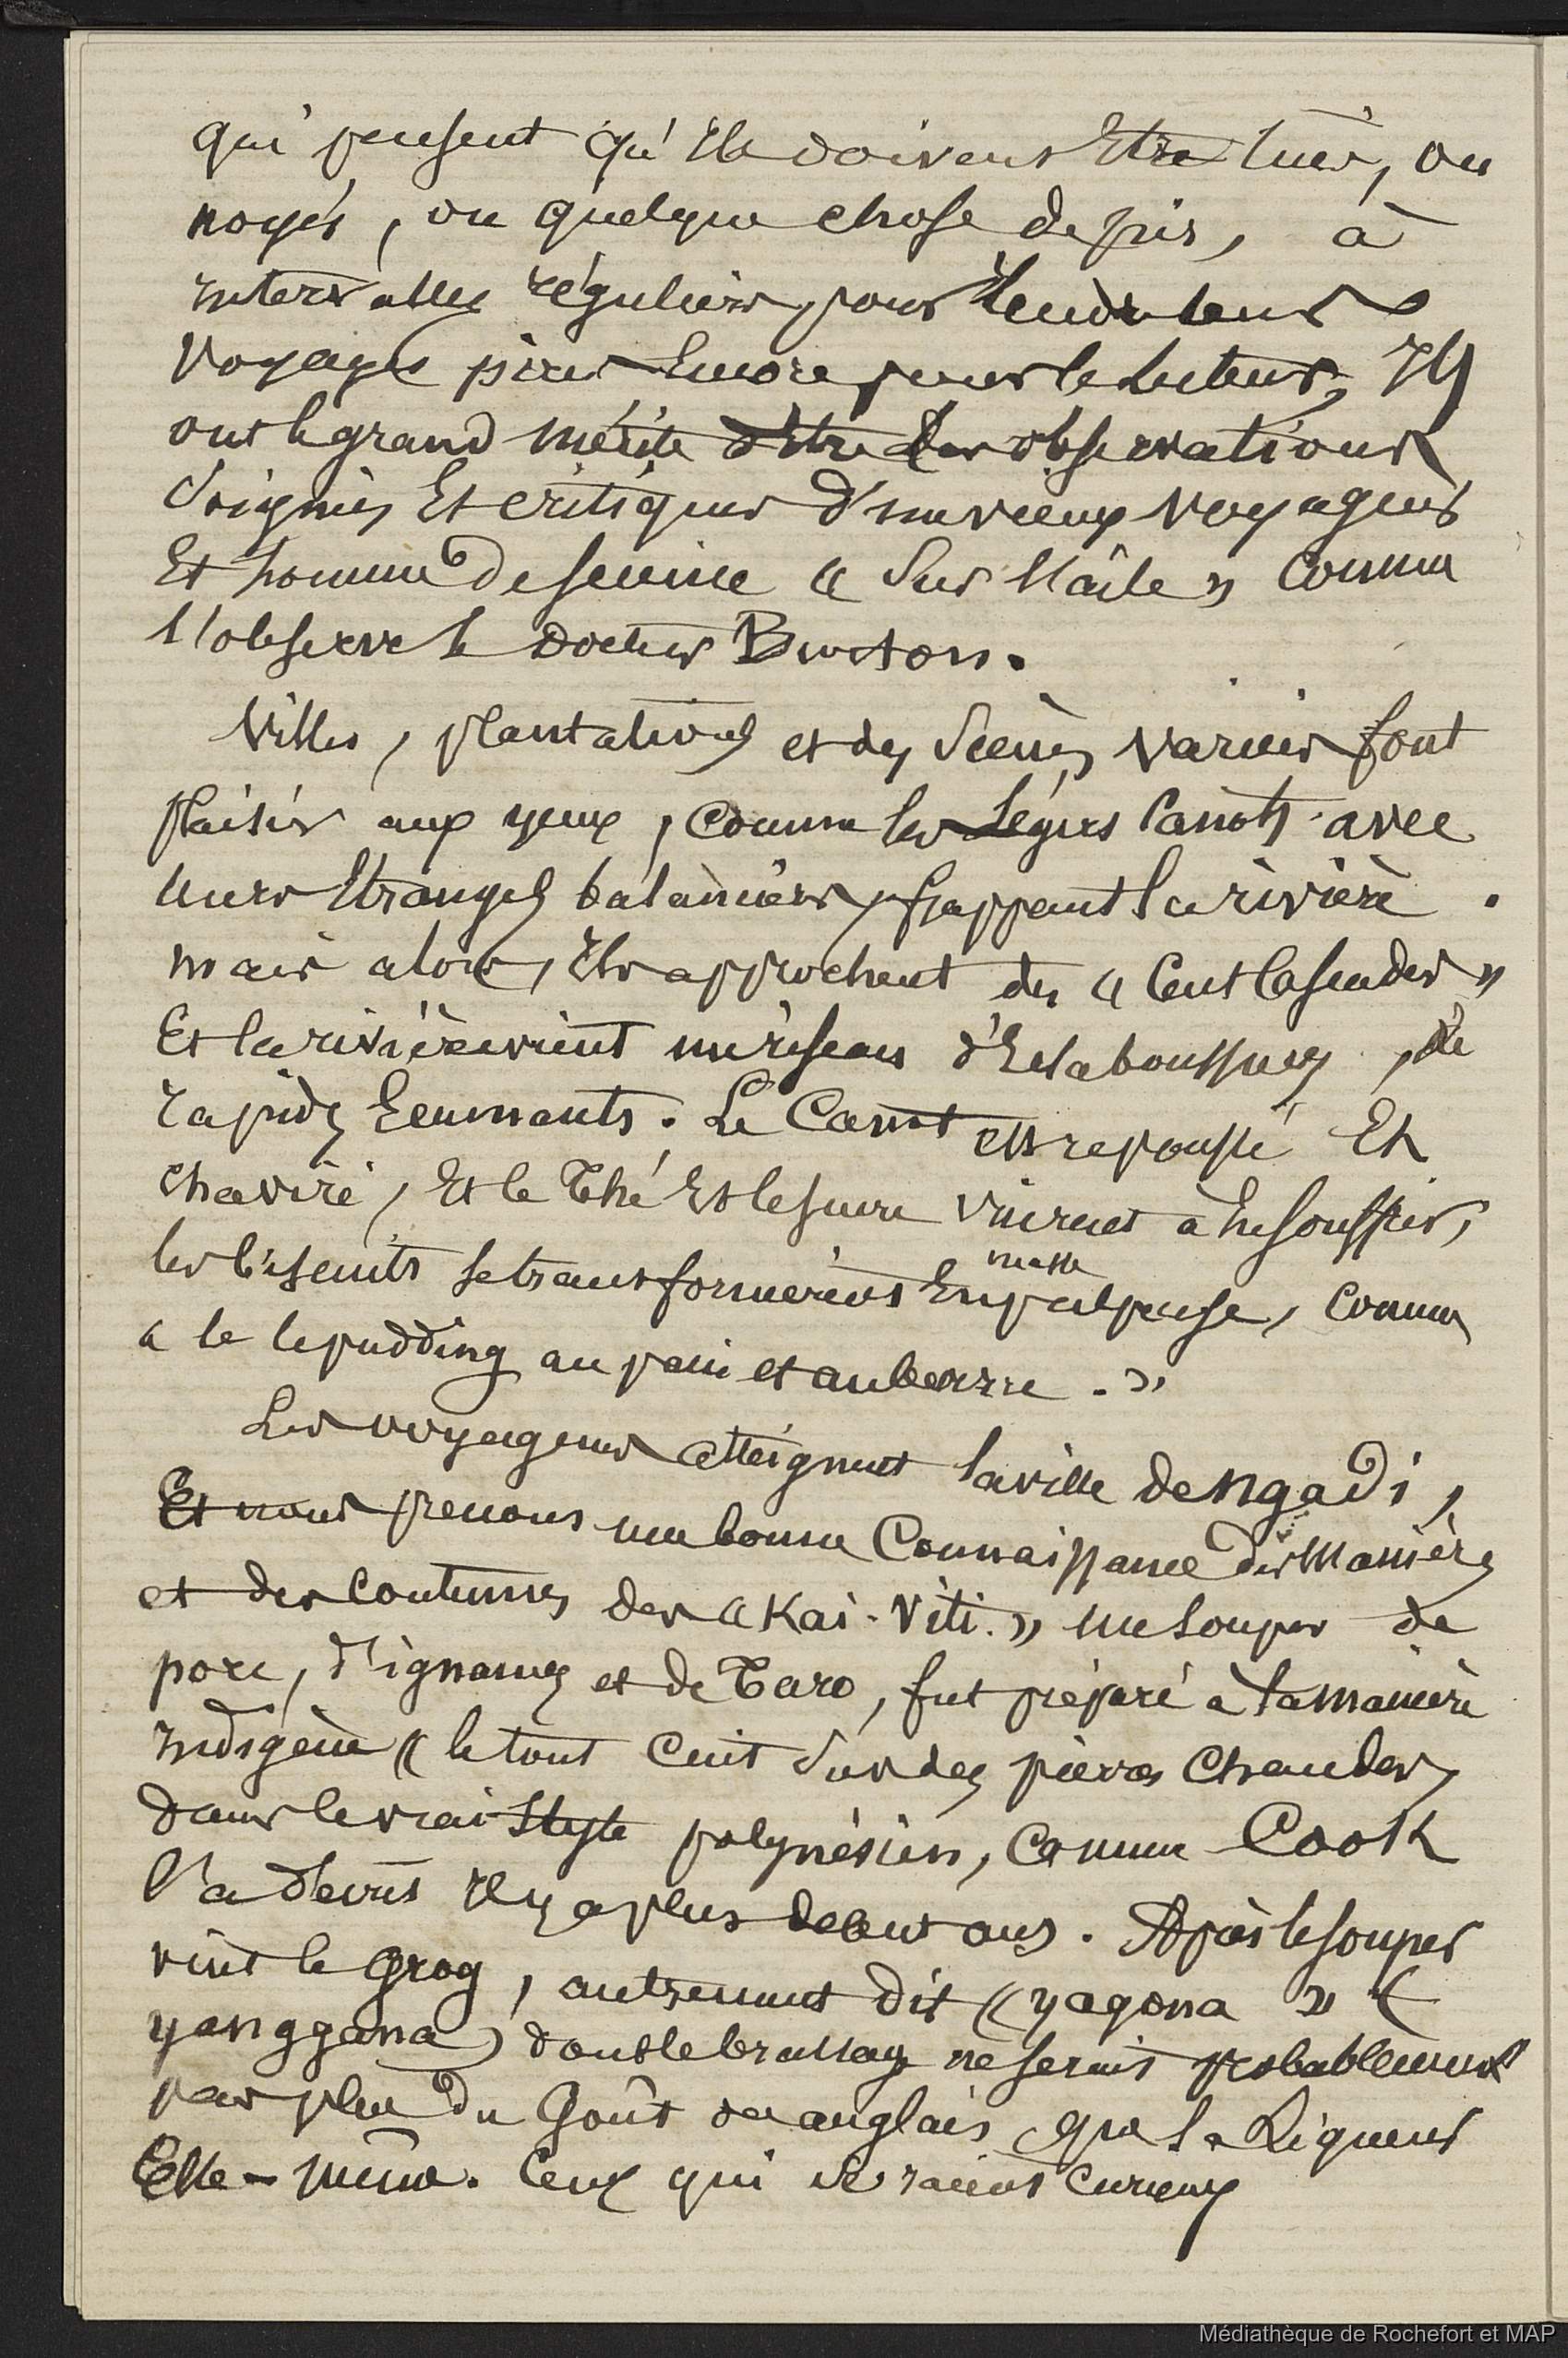 qui pensent qu'ils doivent être tués, ou
noyés, ou quelque chose de pis, à
intervalles réguliers, pour rendre leurs
voyages pires encore pour le lecteur, Ils
ont le grand mérite d'être des observations
soignées et critiques d'un vieux voyageur
Et homme de science « Sur l'aile » comme
l'observe le docteur Burton.
Villes, plantations et des scènes variées font
plaisir aux yeux, comme les légers canots avec
leurs étranges balanciers, frappant la rivière.
mais alors, ils approchent des « Cent Cascades »
Et la rivière vient un réseau d'éclaboussures, de
rapides écumants. Le Canot est repoussé Et
chaviré, Et le Thé Et le sucre vinrent à en souffrir,
les biscuits se transformèrent En masse pulpeuse, comme
« le le pudding au pain et au beurre. »
Les voyageurs atteignent la ville de Ngadi,
Et nous prenons une bonne Connaissance des Manières
et des coutumes des « Kai-Viti. » un souper de
porc, d'ignames et de Taro, fut préparé à la manière
indigène « le tout cuit sur des pierres chaudes,
dans le vrai style polynésien, comme Cook
l'a décrit Il y a plus de cent ans. Après le souper
vint le grog, autrement dit « yagona » (
yanggona) dont le brassage ne serait probablement
pas plus du Goût des anglais que la Liqueur
Elle-même. Ceux qui seraient curieux
Médiathèque de Rochefort et MAP